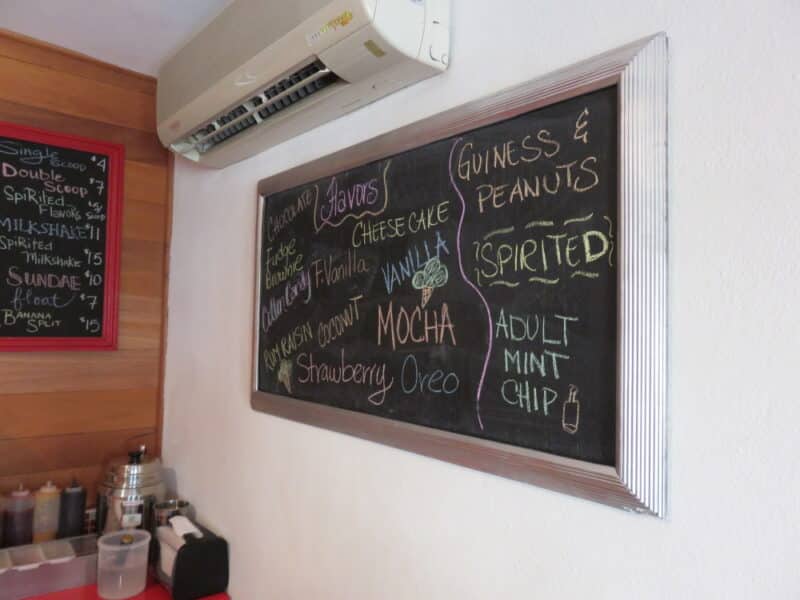 Single Scoop $4
Double Scoop $7
Spirited Flavors
MILKSHAKE $11
Spirited Milkshake $15
SUNDAE $10
float $7
BANANA SPLIT $15
Flavors
CHOCOLATE
CHEESECAKE
Fudge Brownie
F. Vanilla
VANILLA
Cotton Candy
COCONUT
MOCHA
RUM RAISIN
Strawberry
Oreo
GUINESS &
PEANUTS
SPIRITED
ADULT
MINT
CHIP